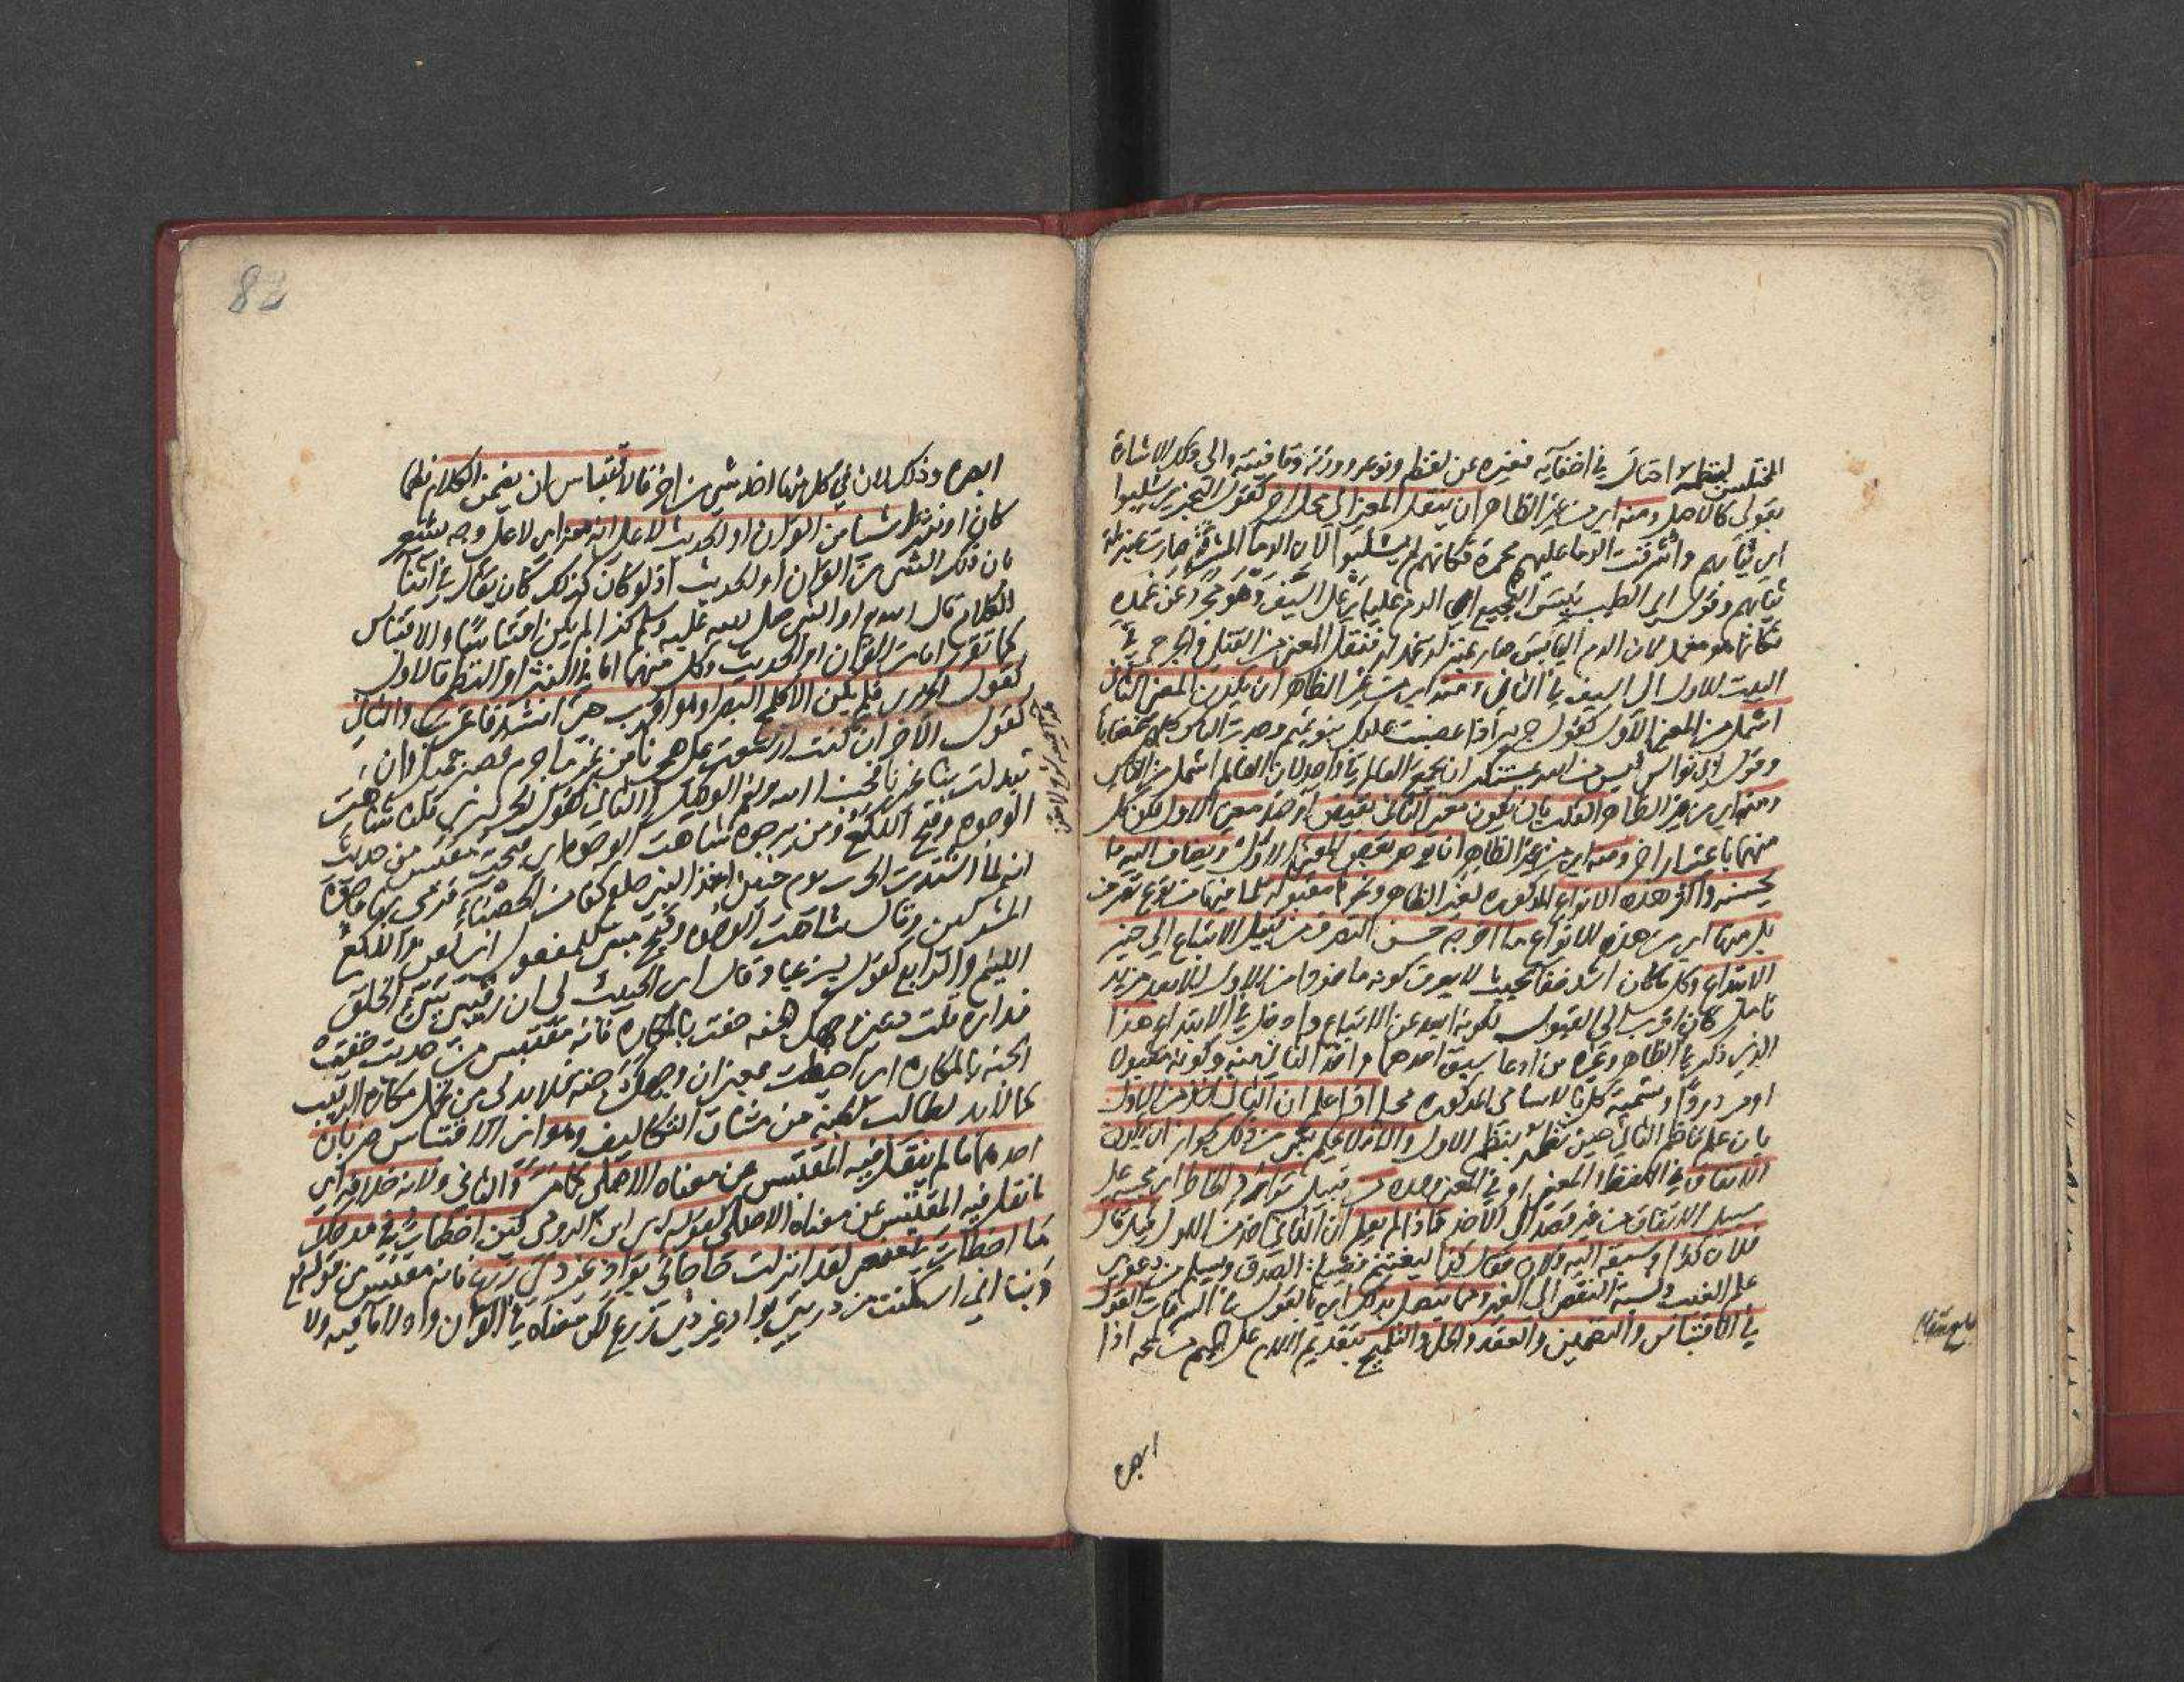 المختلس لنظمه احتال في اخفايه فغيره عن لفظه ونوعه ووزنه وقافيته والى ذلك الاشارة
بقولي كالاصل ومنه اي من غير الظاهر ان ينقل المعنى الى محل اخر كقول البحتري سلبوا
اي ثيابهم واشرقت الدما عليهم محمرة فكانهم لم يسلبوا لان الدما المشرقة صارت بمنزلة
ثيابهم وقول ابي الطيب يبس النجيع اي الدم عليه اي على السيف وهو مجرد عن غمده
فكانما هو مغمد لان الدم اليابس صار بمنزلة غمد له فنقل المعنى من القتلى والجرحى في
البيت الاول الى السيف في الثاني ومنه اي من غير الظاهر ان يكون المعنى الثاني
اشمل من المعنى الاول كقول جرير اذا غضبت عليك بنو تميم وجدت الناس كلهم غضابا
وقول ابي نواس ليس من الله بمستنكر ان يجمع العالم في واحد لان العالم اشمل من الناس
ومنه اي من غير الظاهر القلب بان يكون معنى الثاني نقيض او ضد معنى الاول لكن كل
منهما باعتبار اخر ومنه اي من غير الظاهر ان يوخذ بعض المعنى الاول ويضاف اليه ما
يحسنه واكثر هذه الانواع المذكورة لغير الظاهر ونحوها مقبولة لما فيها من نوع تصرف
بل منها اي من هذه الانواع ما اخرجه حسن التصرف من قبيل الاتباع الى حيز
الابتداع وكل ما كان اشد خفا بحيث لا يعرف كونه ماخوذا من الاول الا بعد مزيد
تامل كان اقرب الى القبول لكونه ابعد عن الاتباع وادخل في الابتداع هذا
الذي ذكر في الظاهر وغيره من ادعا سبق احدهما واخذ الثاني منه وكونه مقبولا
او مردودا وتسمية كل بالاسامي المذكورة محله اذا علم ان الثاني اخذ من الاول
بان علم ناظم الثاني حين نظمه بنظم الاول والا فلا يحكم بشي من ذلك لجواز ان يكون
الاتفاق في اللفظ والمعنى او في المعنى وحده من قبيل توارد الخاطر اي مجيئه على
سبيل الاتفاق من غير قصد الى الاخذ فاذا لم يعلم ان الثاني اخذ من الاول قيل قال
فلان كذا وسبقه اليه فلان فقال كذا ليغتنم فضيلة الصدق ويسلم من دعوى
علم الغيب ونسبة النقص الى الغير ومما يتصل بذلك اي بالقول في السرقات القول
في الاقتباس والتضمين والعقد والحل والتلميح بتقديم اللام على الميم من لمحه اذا
ابصره
82
ابصره وذلك لان في كل منها اخذ شي من اخر فالاقتباس ان يضمن الكلام نظما
كان او نثرا شيا من القران او الحديث لا على انه منه اي لا على وجه يشعر
بان ذلك الشي من القران او الحديث اذ لو كان كذلك كان يقال في اثنا
الكلام قال الله او النبي صلى الله عليه وسلم كذا لم يكن اقتباسا والاقتباس
كما تقرر اما من القران او الحديث وكل منهما اما في النثر او النظم فالاول
كقول الحريري فلم يكن الا كلمح البصر او هو اقرب حتى انشد فاغرب والثاني
كقول الاخر ان كنت ازمعت على هجرنا من غير ما جرم فصبر جميل وان
تبدلت بنا غيرنا فحسبنا الله ونعم الوكيل والثالث كقول الحريري قلنا شاهت
الوجوه وقبح اللكع ومن يرجوه شاهت الوجوه اي قبحت مقتبس من حديث
انه لما اشتدت الحرب يوم حنين اخذ النبي صلعم كفا من الحصباء فرمى به وجوه
المشركين وقال شاهت الوجوه وقبح مبني للمفعول اي لعن واللكع
اللئيم والرابع كقول ابن عباد قال اي الحبيب لي ان رقيبي سيئ الخلق
فداره قلت دعني وجهك الجنه حفت بالمكاره فانه مقتبس من حديث حفت
الجنه بالمكاره اي احيطت يعني ان وجهك جنة فلا بد لي من تحمل مكاره الرقيب
كما لا بد لطالب الجنة من مشاق التكاليف وهو اي الاقتباس ضربان
احدهما ما لم ينقل فيه المقتبس عن معناه الاصلي كما مر والثاني ولانه خلافه اي
ما نقل فيه المقتبس عن معناه الاصلي كقوله اي ابن الرومي لئن اخطات في مدحك
ما اخطات في منعي لقد انزلت حاجاتي بواد غير ذي زرع فانه مقتبس من قوله تع
ربنا اني اسكنت من ذريتي بواد غير ذي زرع لكن معناه في القران واد لا ما فيه ولا